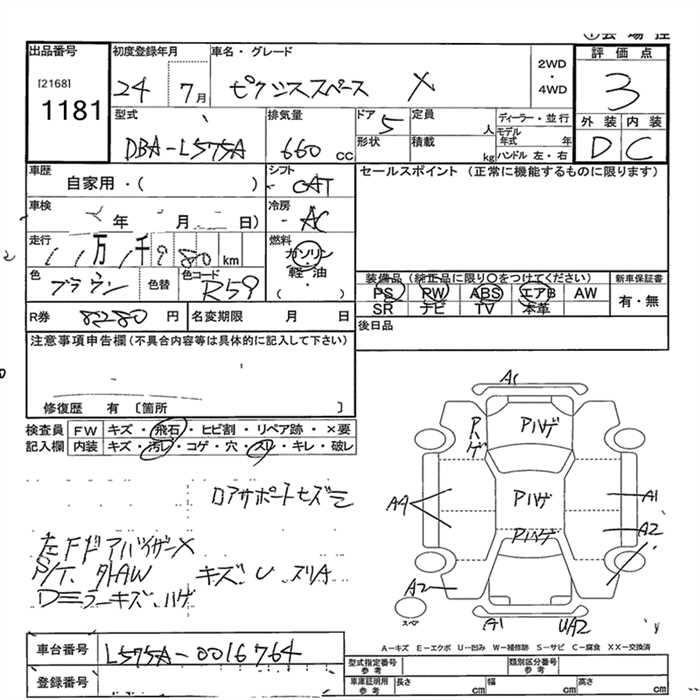 ①会場控
出品番号 初度登録年月 車名・グレード 2WD・4WD 評価点
[2168]
1181
24 7月 ピクシススペース X 3
型式 排気量 ドア 定員 人 ディーラー・並行 外装 内装
DBA-L575A 660 CC 5 形状 積載 kg モデル年式 年 ハンドル 左・右 D C
車歴 自家用・( ) シフト CAT セールスポイント (正常に機能するものに限ります)
車検 年 月 日) 冷房 AC
走行 万 千 km 燃料 ガソリン・軽油・( )
色 ブラウン 色替 色コード R59
装備品 (純正品に限り○をつけてください) 新車保証書
PS PW ABS エアB AW 有・無
SR ナビ TV 本革
R券 円 名変期限 月 日 後日品
注意事項申告欄(不具合内容等は具体的に記入して下さい)
修復歴 有 〔箇所 〕
検査員記入欄 FW キズ・飛石・ヒビ割・リペア跡・×要
内装 キズ・汚レ・コゲ・穴・スレ・キレ・破レ
ロアサポートセズミ
左Fドアバイザー×
P/T、外AW キズ U スリA
Dミラーキズ、ハゲ
A1
Pハゲ
Rゲ
Pハゲ
Pハゲ
A4
A1
A2
A2
A1
UA2
スペア
A-キズ E-エクボ U-凹み W-補修跡 S-サビ C-腐食 XX-交換済
車台番号 L575A-0016764
登録番号
型式指定番号 参考 類別区分番号 参考
車庫証明用 参考 長さ cm 幅 cm 高さ cm